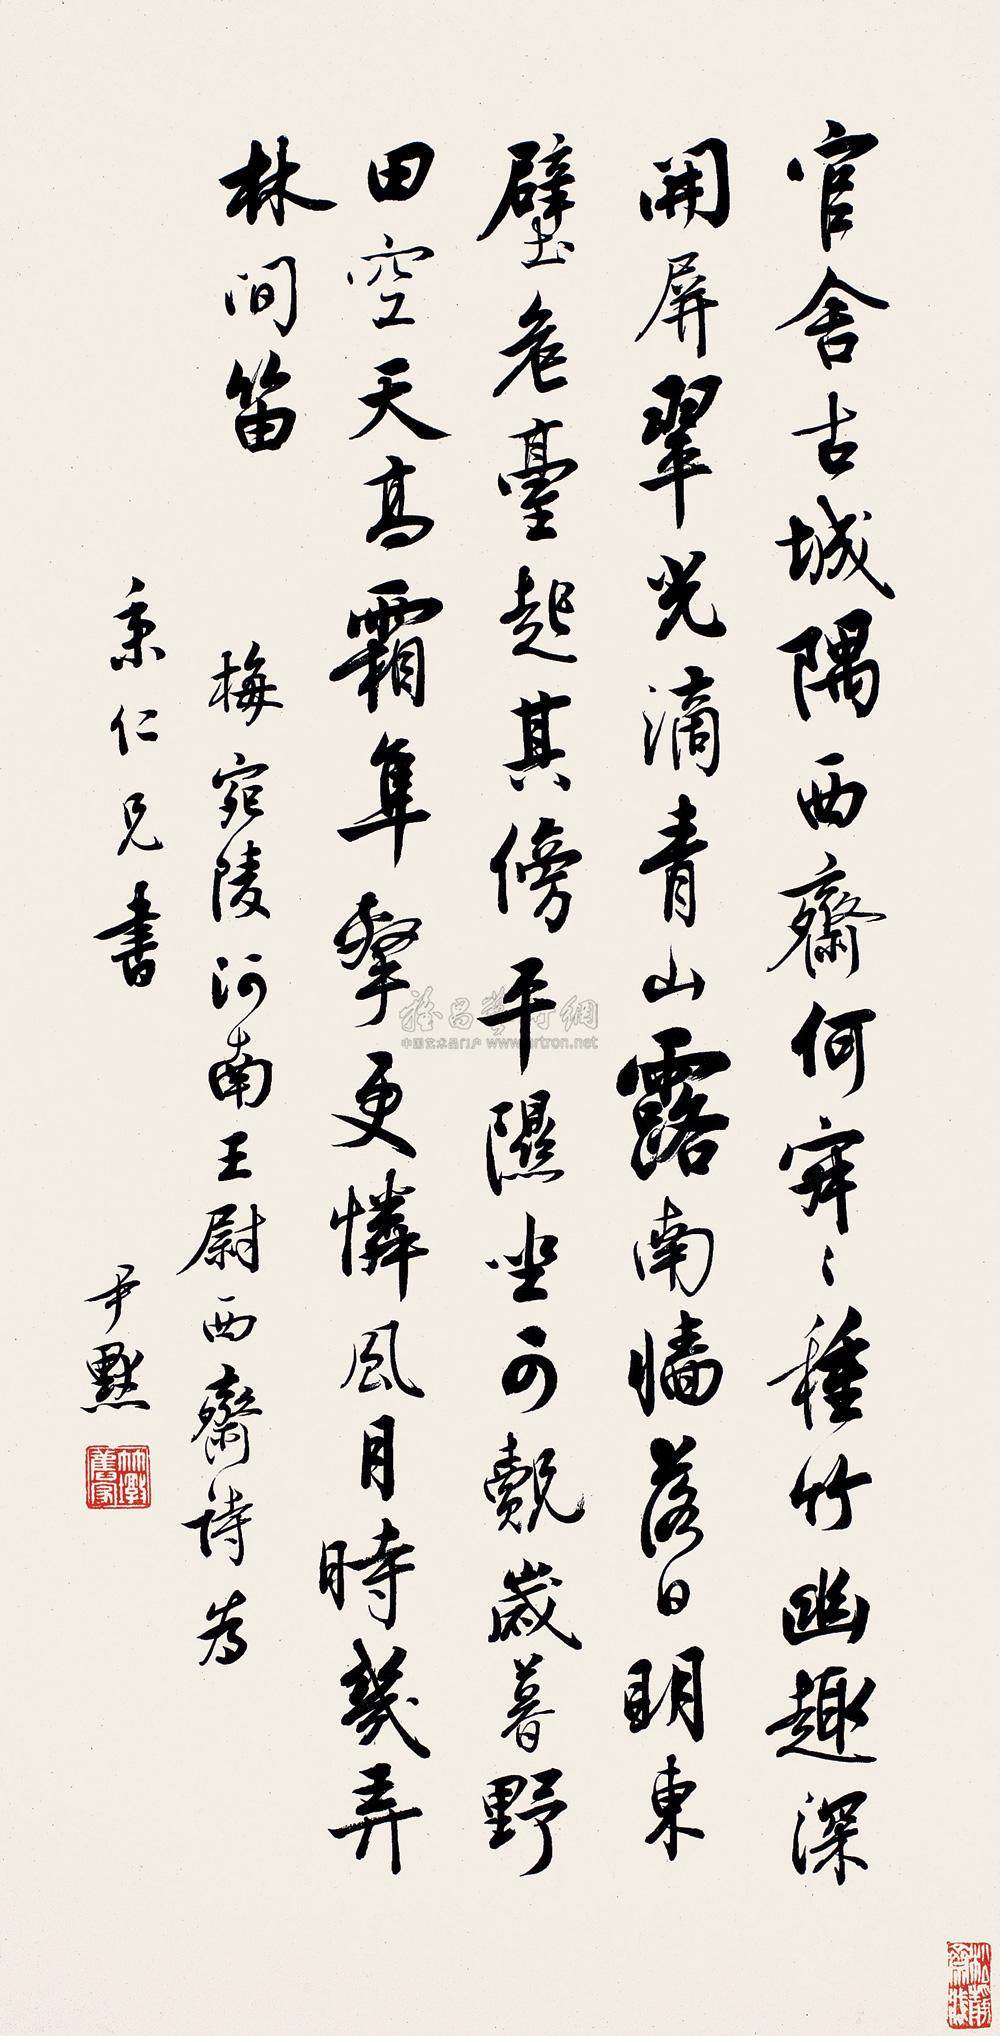 官舍古城隅西齋何寂〻種竹幽趣深
開屏翠光滴青山露南牆落日明東
壁危臺起其傍平隰坐可覿歲暮野
田空天高霜隼擊更憐風月時幾弄
林間笛
梅宛陵河南王尉西齋詩為
秉仁兄書
尹默
竹溪舊家
雅昌藝術網
中国艺术品门户 www.artron.net